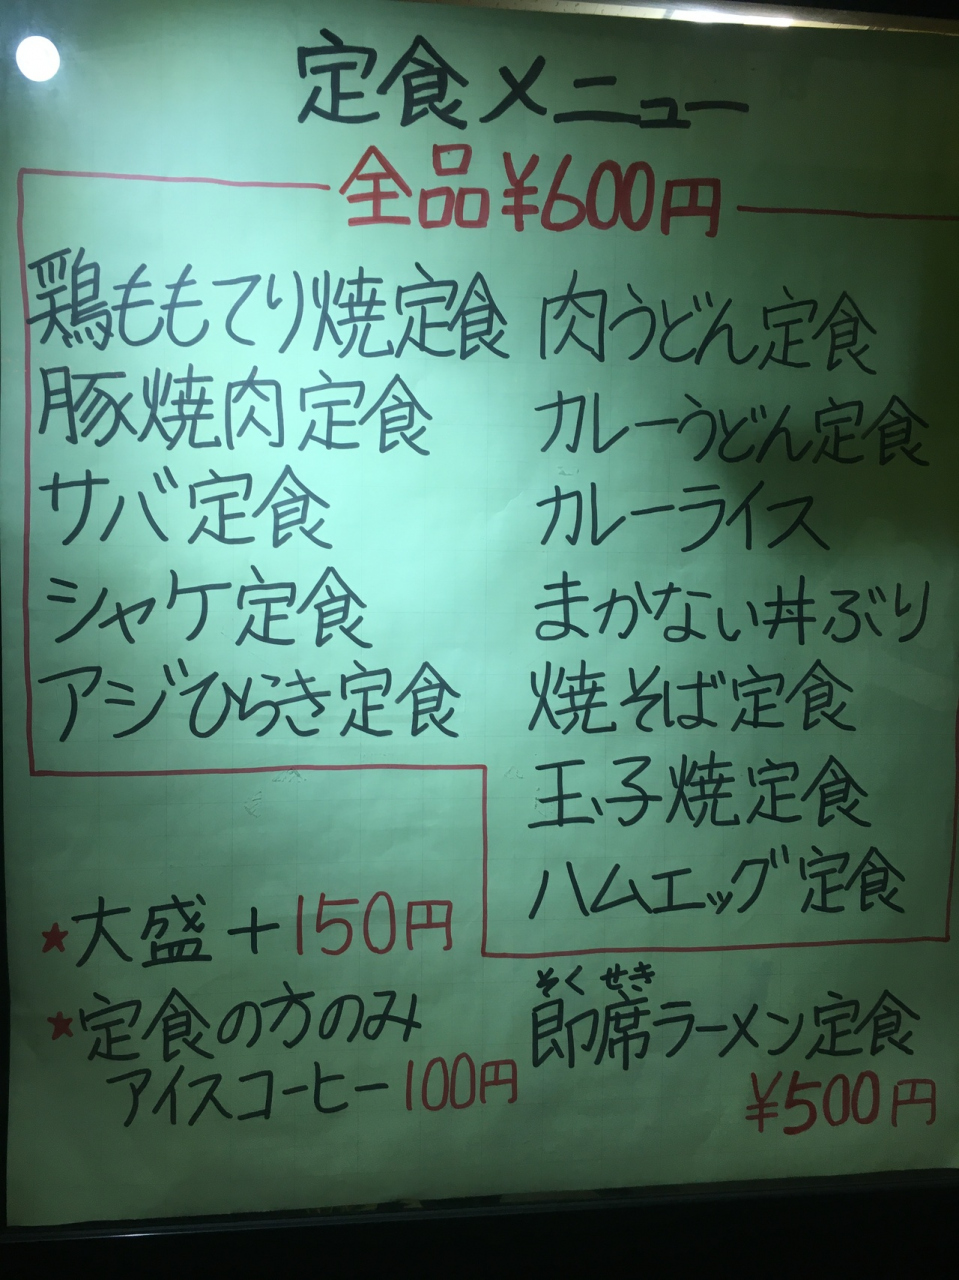 定食メニュー
全品¥600円
鶏ももてり焼定食
豚焼肉定食
サバ定食
シャケ定食
アジひらき定食
肉うどん定食
カレーうどん定食
カレーライス
まかない丼ぶり
焼そば定食
玉子焼定食
ハムエッグ定食
★大盛+150円
★定食の方のみ
アイスコーヒー100円
そくせき
即席ラーメン定食
¥500円